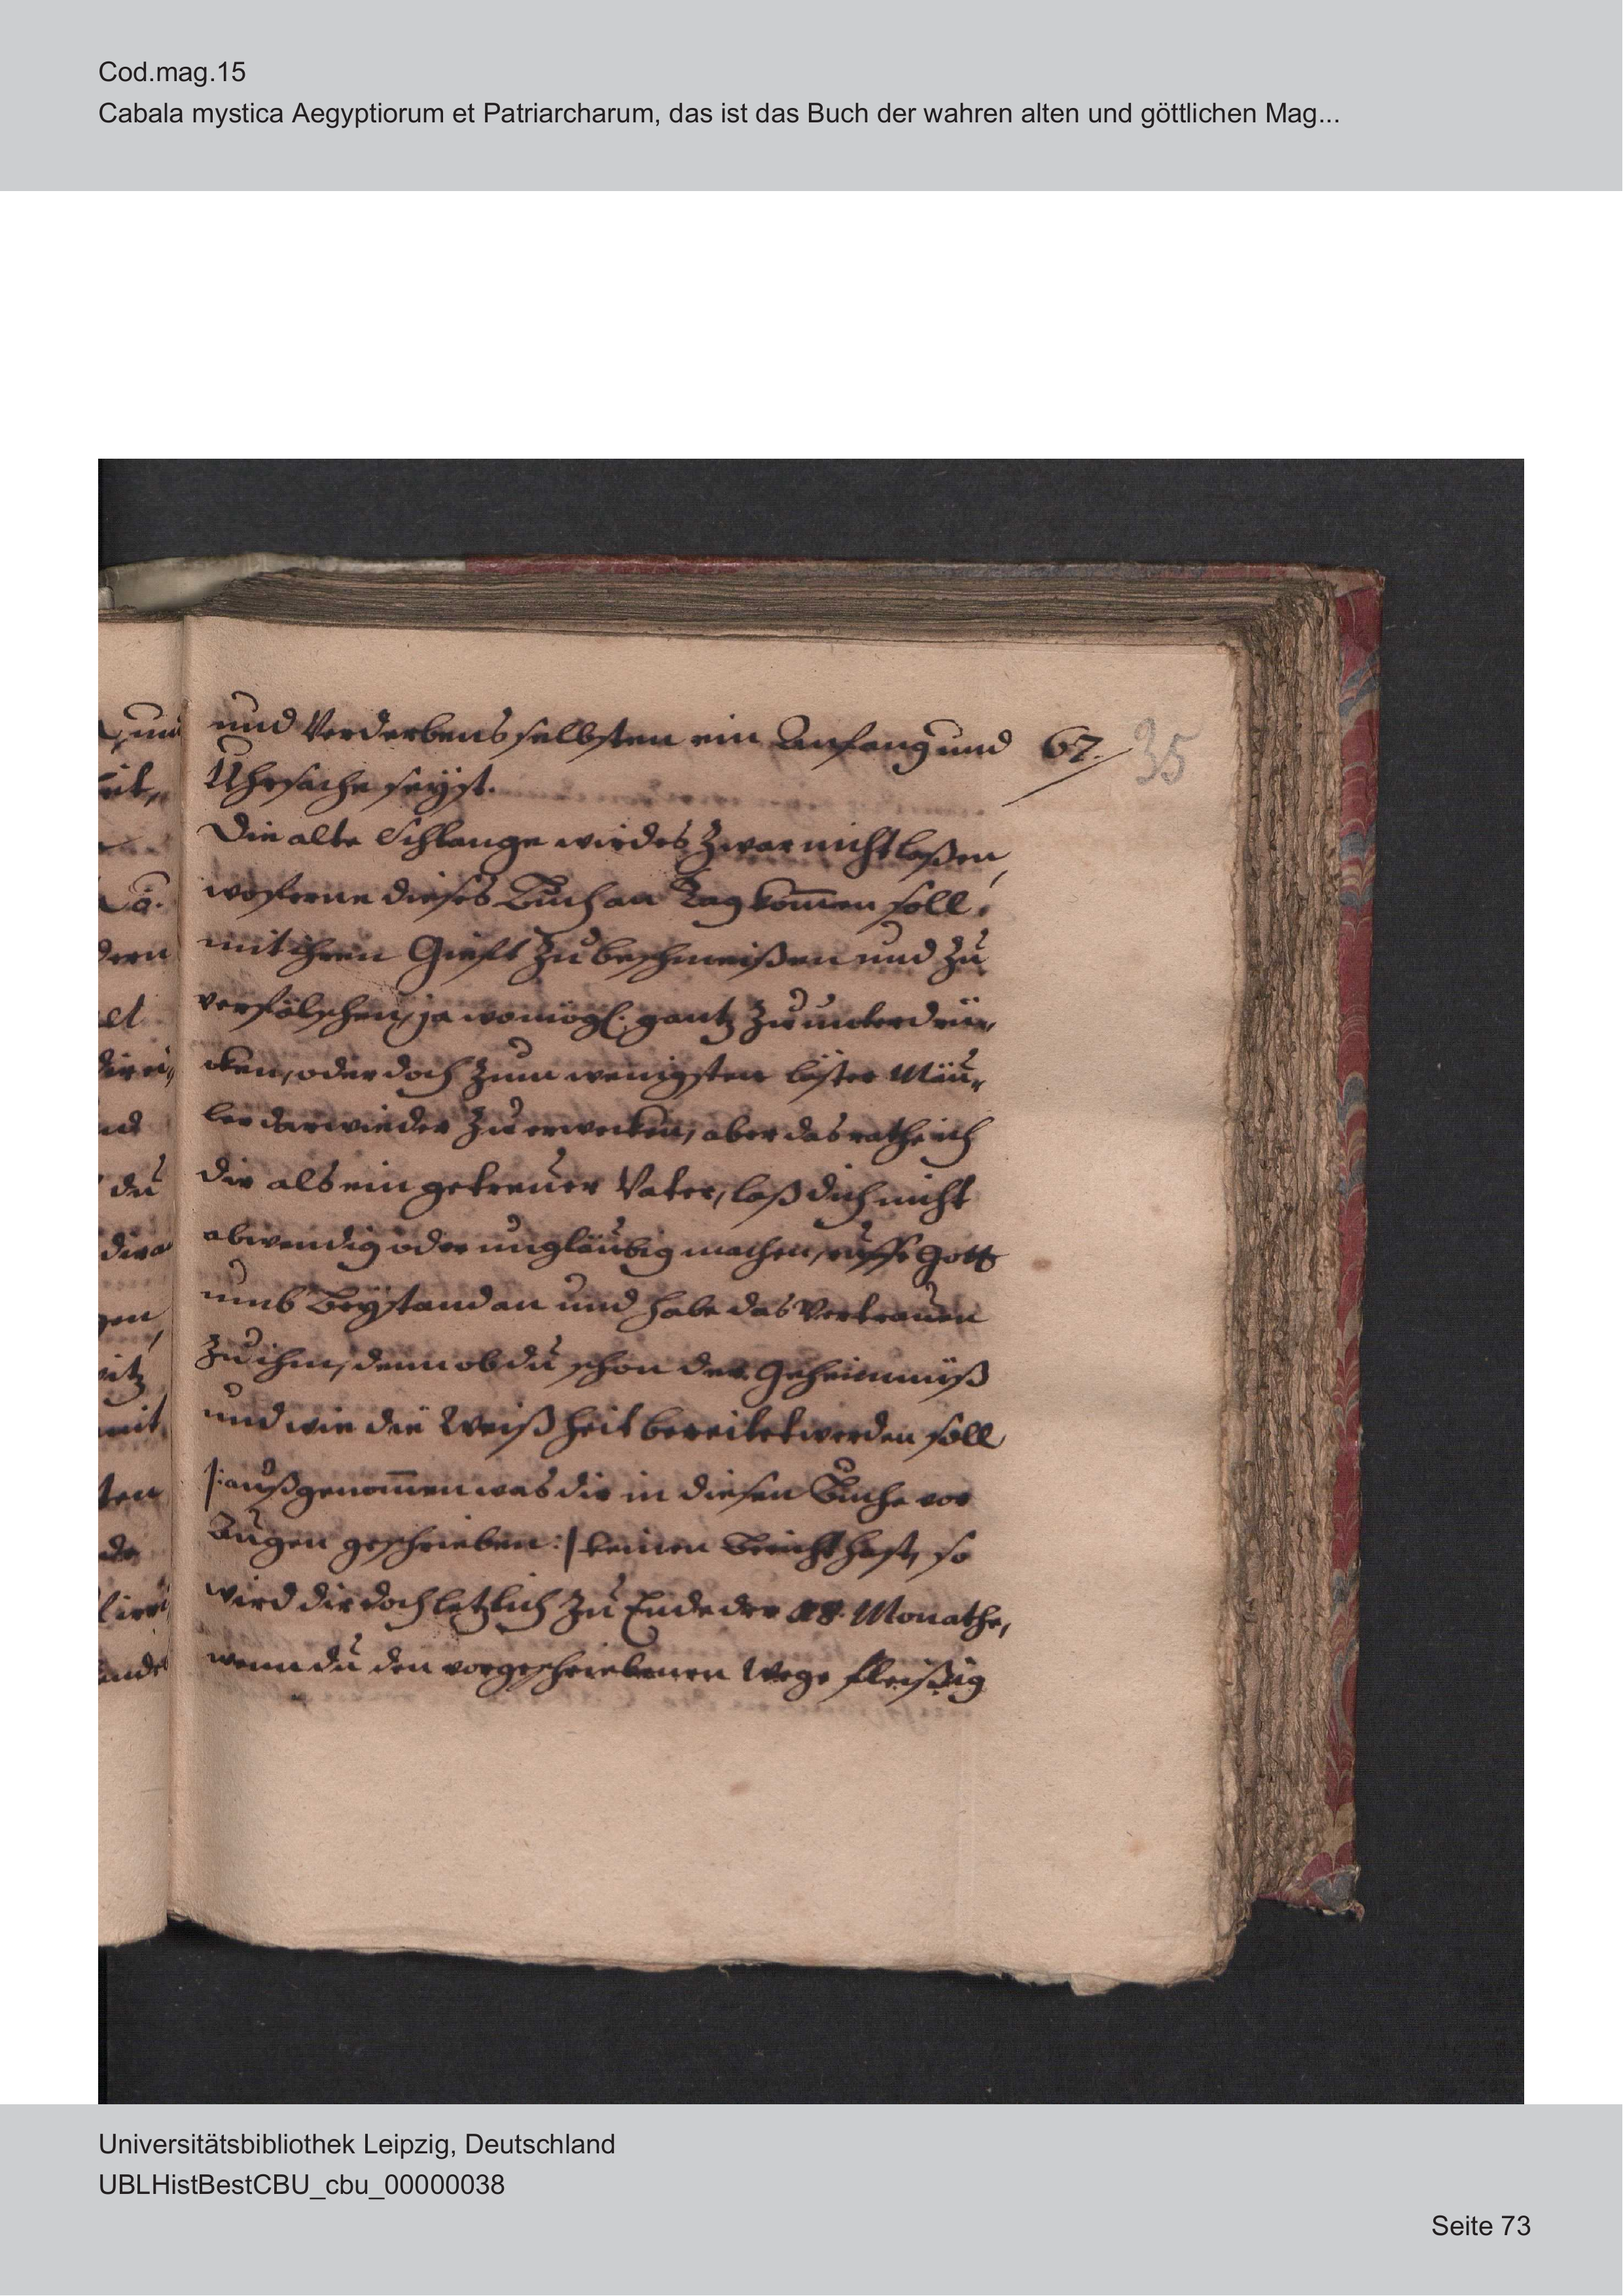 Cod.mag.15
Cabala mystica Aegyptiorum et Patriarcharum, das ist das Buch der wahren alten und göttlichen Mag...
und Verderbens selbsten ein Anfang und 67. 35
Uhrsache seÿst.
Die alte Schlange wird es zwar nicht laßen,
woferne dieses Buch an Tag kom̅en soll,
mit ihren Gieft zu beschmeißen und zu
verfälschen, ja womögl. gantz zu unterdrü-
cken, oder doch zum wenigsten läster Mäu-
ler darwieder zu erwecken, aber das rathe ich
dir als ein getreuer Vater, laß dich nicht
abwendig oder ungläubig machen, ruffe Gott
umb Beÿstand an und habe das Vertrauen
zu ihm, denn ob du schon der Geheimnüß
und wie die Weißheit bereitet werden soll
/: außgenom̅en was dir in diesen Buche vor
Augen geschrieben :/ keinen Bericht hast, so
wird dir doch letzlich zu Ende der 18. Monathe,
wenn du den vorgeschriebenen Wege fleißig
Universitätsbibliothek Leipzig, Deutschland
UBLHistBestCBU_cbu_00000038
Seite 73